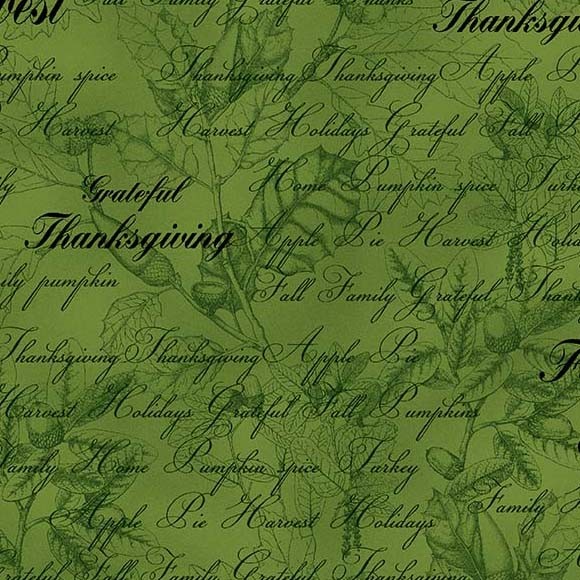 Fall Family Grateful Thanks
Thanksgi
umpkin spice Thanksgiving Thanksgiving Apple
Harvest Harvest Holidays Grateful Fall
Home Pumpkin spice Turk
Grateful
Thanksgiving Apple Pie Harvest Holida
ily pumpkin Fall Family Grateful Thank
Thanksgiving Thanksgiving Apple Pie
Harvest Holidays Grateful Fall Pumpkins
Family Home Pumpkin spice Turkey
Family
Apple Pie Harvest Holidays
rateful Fall Family Grateful Thanksgiving